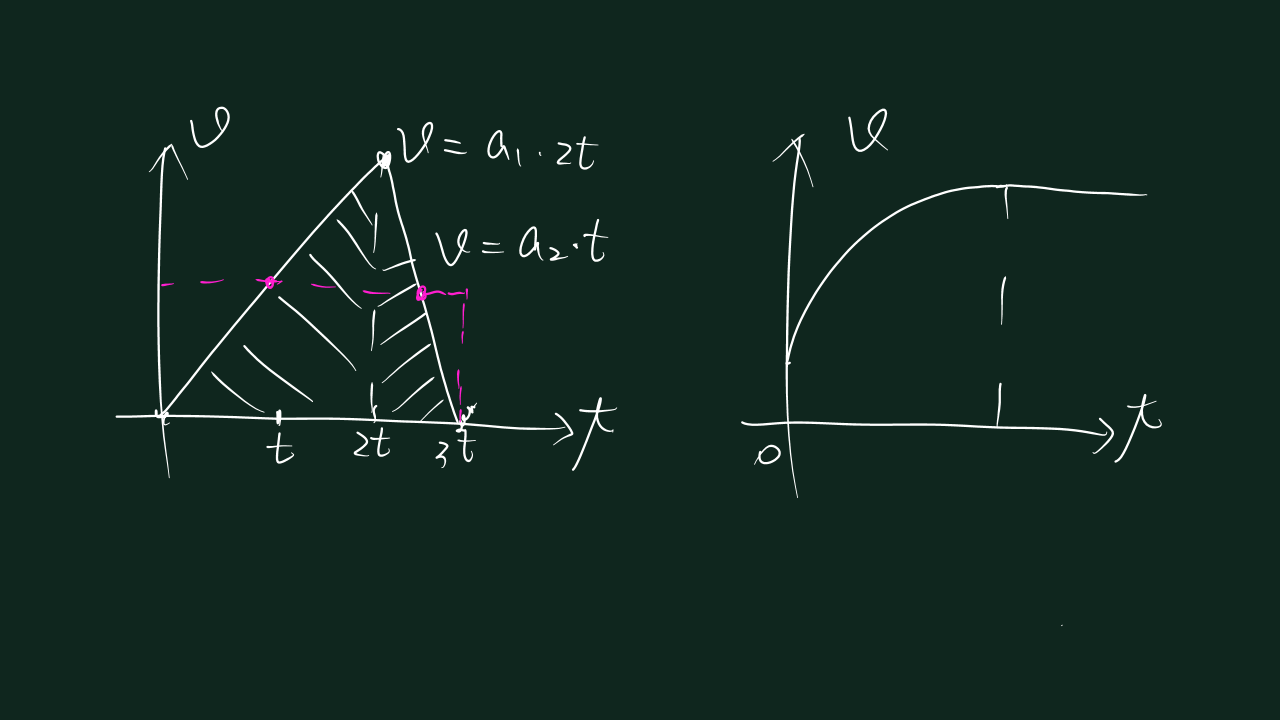 v
v = a₁ · 2t
v = a₂ · t
t
2t
3t
t
v
0
t